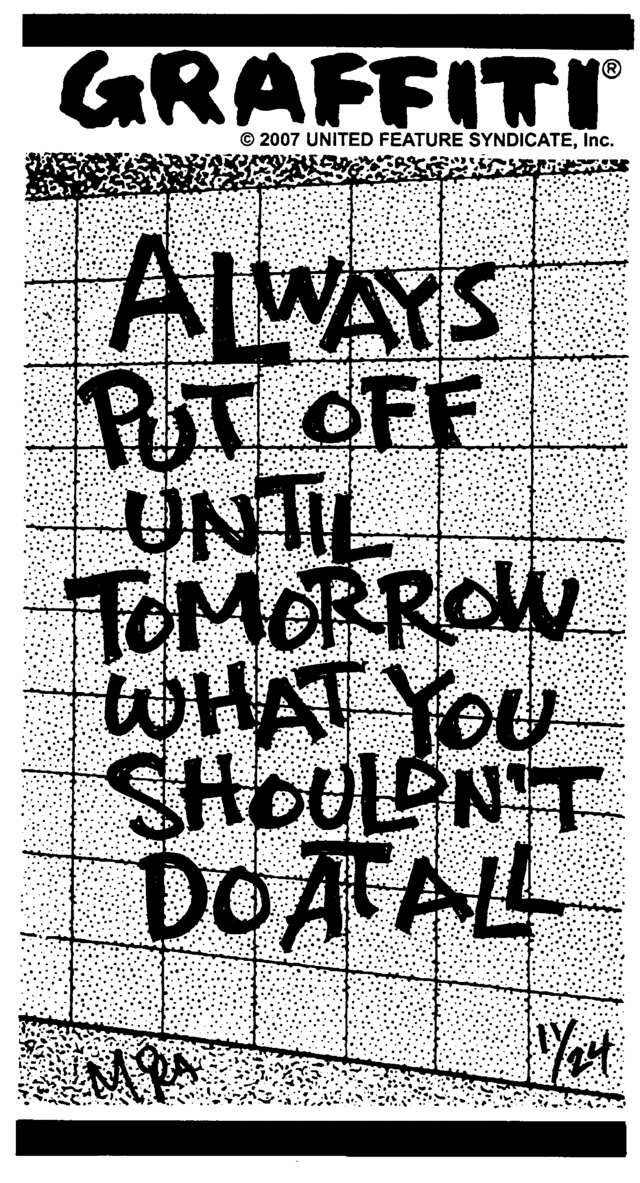 GRAFFITI®
© 2007 UNITED FEATURE SYNDICATE, Inc.
ALWAYS
PUT OFF
UNTIL
TOMORROW
WHAT YOU
SHOULDN'T
DO AT ALL
11/24